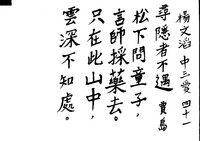 楊文滔 中三愛 四十一
尋隱者不遇 賈島
松下問童子，
言師採藥去。
只在此山中，
雲深不知處。